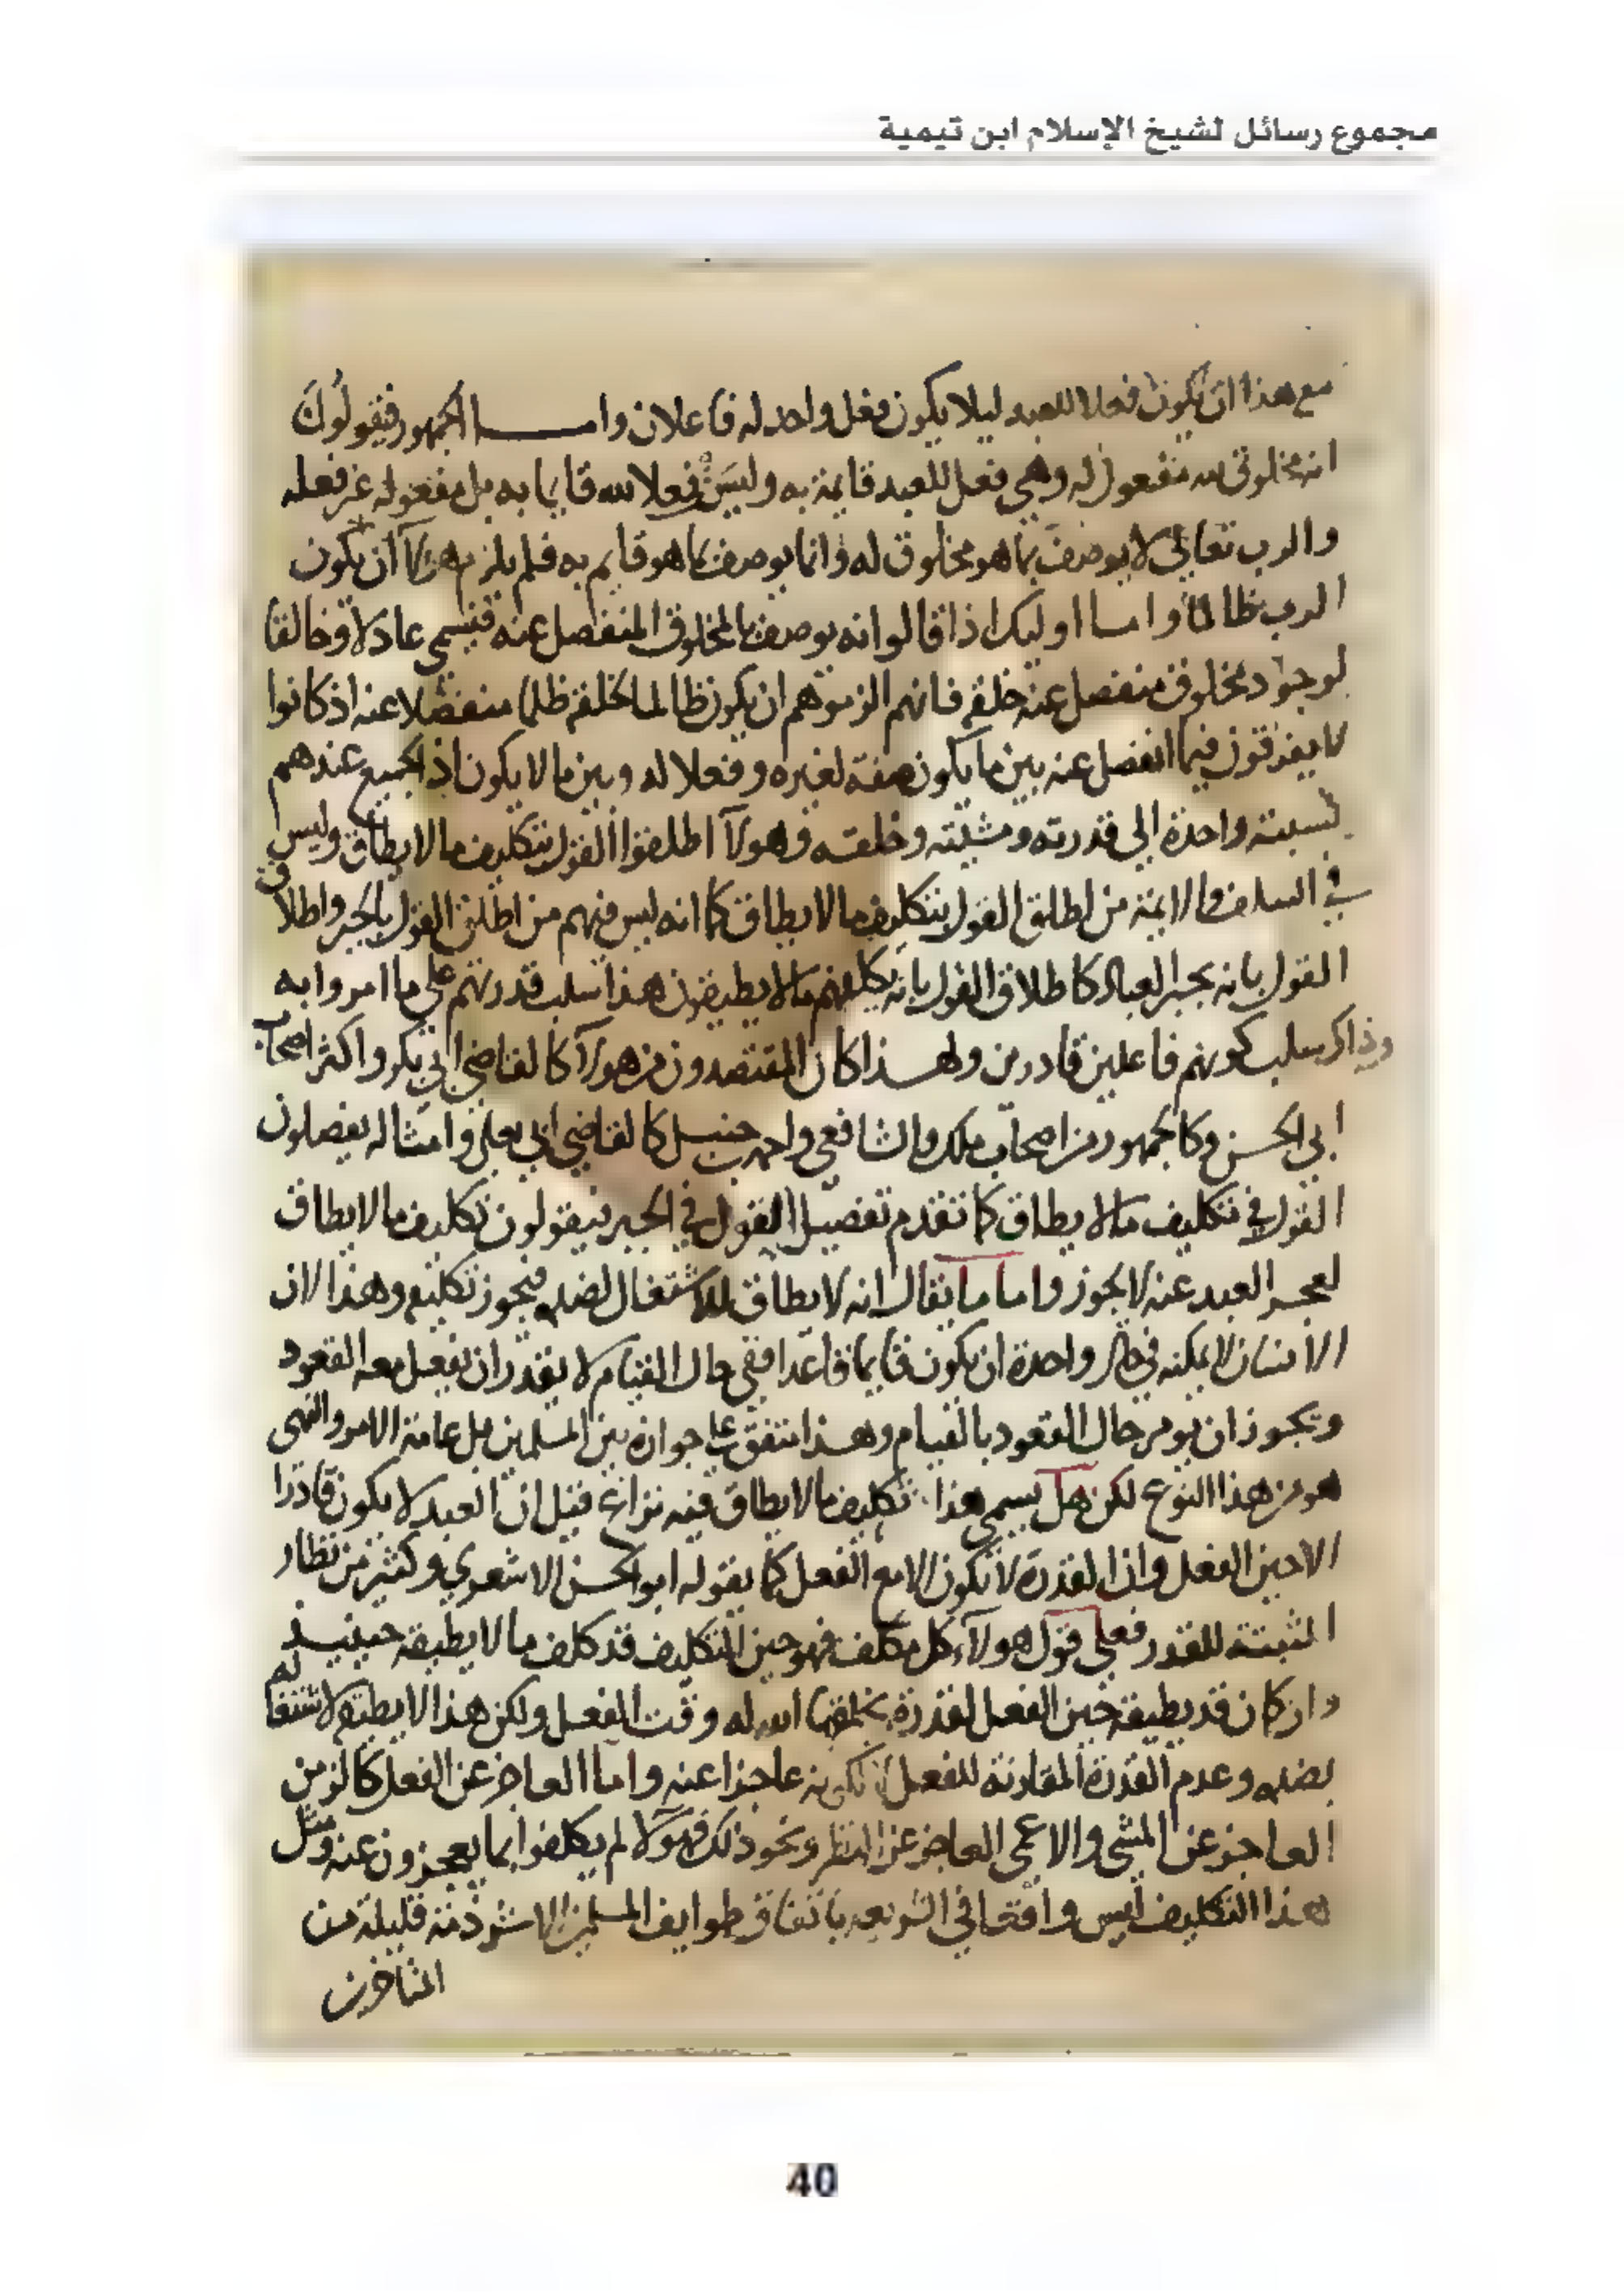 مجموع رسائل لشيخ الإسلام ابن تيمية
مع هذا ان يكون فعلا للعبد ليلا يكون فعل واحد له فاعلان واما الجمهور فيقولون
انه مخلوق لله مفعول له وهي فعل للعبد قايمة به وليست فعلا لله قايما به بل مفعوله غير فعله
والرب تعالى لا يوصف بما هو مخلوق له وانما يوصف بما هو قايم به فلم يلزم هولآ أن يكون
الرب ظالما واما اوليك اذا قالوا انه يوصف بالمخلوق المنفصل عنه فيسمى عادلا وخالقا
لوجود مخلوق منفصل عنه خلقه فانهم الزموهم ان يكون ظالما لخلقه ظلما منفصلا عنه اذ كانوا
لا يفرقون فيما انفصل عنه بين ما يكون صفة لغيره وفعلا له وبين ما لا يكون اذ الجميع عندهم
نسبته واحدة الى قدرته ومشيته وخلقه وهولآ اطلقوا القول بتكليف ما لا يطاق وليس
في السلف والايمة من اطلق القول بتكليف ما لا يطاق كما انه ليس فيهم من اطلق القول بالجبر واطلاق
القول بانه يجبر العباد كاطلاق القول بانه يكلفهم ما لا يطيقون هذا سلب قدرتهم على ما امروا به
وذاك سلب كونهم فاعلين قادرين ولهذا كان المقتصدون من هولآ كالقاضي ابي بكر واكثر اصحاب
ابي الحسن وكالجمهور من اصحاب ملك والشافعي واحمد بن حنبل كالقاضي ابي يعلى وامثاله يفصلون
القول في تكليف ما لا يطاق كما تقدم تفصيل القول في الجبر فيقولون تكليف ما لا يطاق
لعجز العبد عنه لا يجوز واما ما يقال انه لا يطاق للاشتغال بضده فيجوز تكليفه وهذا لان
الانسان لا يمكنه في حال واحدة ان يكون قايما قاعدا ففي حال القيام لا يقدر ان يفعل معه القعود
ويجوز ان يومر حال القعود بالقيام وهذا متفق على جوازه بين المسلمين بل عامة الامر والنهي
هو من هذا النوع لكن هل يسمى هذا تكليف ما لا يطاق فيه نزاع قيل ان العبد لا يكون قادرا
الا حين الفعل وان القدرة لا تكون الا مع الفعل كما يقوله ابو الحسن الاشعري وكثير من نظار
المثبتة للقدر فعلى قول هولآء كل مكلف فهو حين التكليف قد كلف ما لا يطيقه حينيذ
وان كان قد يطيقه حين الفعل لقدرة يخلقها الله له وقت الفعل ولكن هذا لا يطيقه لاشتغاله
بضده وعدم القدرة المقارنة للفعل لا لكونه عاجزا عنه واما العاجز عن الفعل كالزمن
العاجز عن المشي والاعمى العاجز عن النظر ونحو ذلك فهولآ لم يكلفوا بما يعجزون عنه ومثل
هذا التكليف ليس واقعا في الشريعة باتفاق طوايف المسلمين الا شرذمة قليلة من
المتاخرين
40